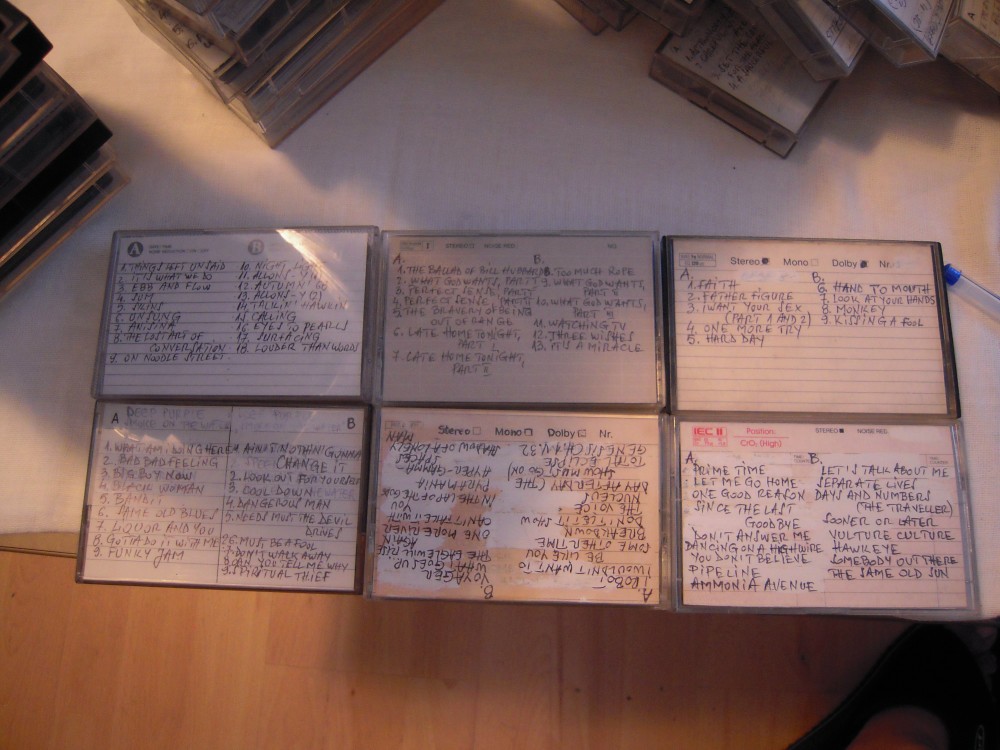 A
B
1. THINGS LEFT UNSAID
2. IT'S WHAT WE DO
3. EBB AND FLOW
4. SUM
5. SKINS
6. UNSUNG
7. ANISINA
8. THE LOST ART OF
CONVERSATION
9. ON NOODLE STREET
10. NIGHT
11. ALLONS-Y (1)
12. AUTUMN '68
13. ALLONS-Y (2)
14. TALKIN' HAWKIN
15. CALLING
16. EYES TO PEARLS
17. SURFACING
18. LOUDER THAN WORDS
STEREO NOISE RED. NO.
A.
1. THE BALLAD OF BILL HUBBARD
2. WHAT GOD WANTS, PART I
3. PERFECT SENSE, PART I
4. PERFECT SENSE, PART II
5. THE BRAVERY OF BEING
OUT OF RANGE
6. LATE HOME TONIGHT,
PART I
7. LATE HOME TONIGHT,
PART II
B.
8. TOO MUCH ROPE
9. WHAT GOD WANTS,
PART II
10. WHAT GOD WANTS,
PART III
11. WATCHING TV
12. THREE WISHES
13. IT'S A MIRACLE
Stereo Mono Dolby Nr.
A.
1. FAITH
2. FATHER FIGURE
3. I WANT YOUR SEX
(PART 1 AND 2)
4. ONE MORE TRY
5. HARD DAY
B.
6. HAND TO MOUTH
7. LOOK AT YOUR HANDS
8. MONKEY
9. KISSING A FOOL
A DEEP PURPLE
B
1. WHAT AM I DOING HERE
2. BAD BAD FEELING
3. BIG BOY NOW
4. BLACK WOMAN
6. SAME OLD BLUES
7. LIQUOR AND YOU
8. GOTTA DO IT WITH ME
9. FUNKY JAM
1. AIN'T NOTHIN' GONNA
CHANGE IT
2. LOOK OUT FOR YOURSELF
3. COOL DOWN
4. DANGEROUS MAN
5. NEEDS MUST THE DEVIL
DRIVES
6. MUST BE A FOOL
7. DON'T WALK AWAY
8. CAN YOU TELL ME WHY
9. SPIRITUAL THIEF
Stereo Mono Dolby Nr.
A.
I ROBOT
I WOULDN'T WANT TO
BE LIKE YOU
SOME OTHER TIME
BREAKDOWN
DON'T LET IT SHOW
THE VOICE
NUCLEUS
DAY AFTER DAY (THE
SHOW MUST GO ON)
TOTAL ECLIPSE
GENESIS CH.1.V.32
B
VOYAGER
WHAT GOES UP
THE EAGLE WILL RISE
AGAIN
ONE MORE RIVER
CAN'T TAKE IT WITH
YOU
IN THE LAP OF THE GODS
PYRAMANIA
HYPER-GAMMA-
SPACES
SHADOW OF A LONELY
MAN
IEC II
Position:
CrO₂ (High)
STEREO NOISE RED.
A.
PRIME TIME
LET ME GO HOME
ONE GOOD REASON
SINCE THE LAST
GOODBYE
DON'T ANSWER ME
DANCING ON A HIGHWIRE
YOU DON'T BELIEVE
PIPELINE
AMMONIA AVENUE
B.
LET'S TALK ABOUT ME
SEPARATE LIVES
DAYS AND NUMBERS
(THE TRAVELLER)
SOONER OR LATER
VULTURE CULTURE
HAWKEYE
SOMEBODY OUT THERE
THE SAME OLD SUN